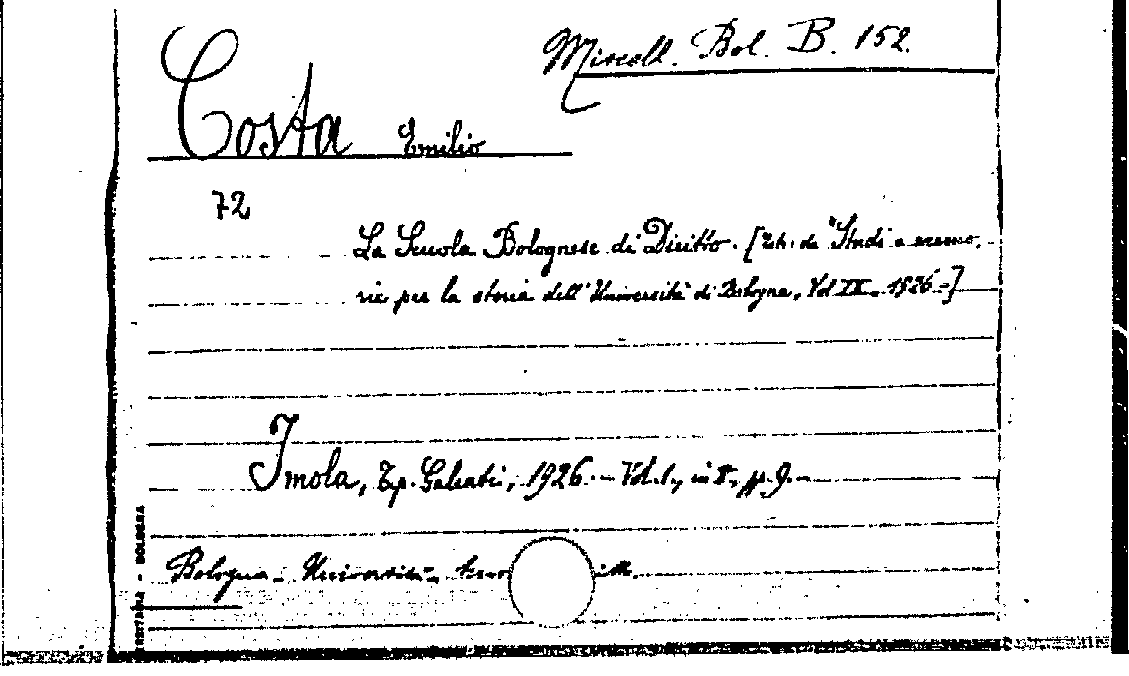 Miscell. Bol. B. 152.
Costa Emilio
72
La Scuola Bolognese di Diritto. [Estr. da "Studi e memo.
rie per la storia dell'Università di Bologna, Vol IX. 1926.-]
Imola, Tip. Galeati, 1926. - Vol. 1, in 8°, pp. 9.-
Bologna - Università -
BOLOGNA